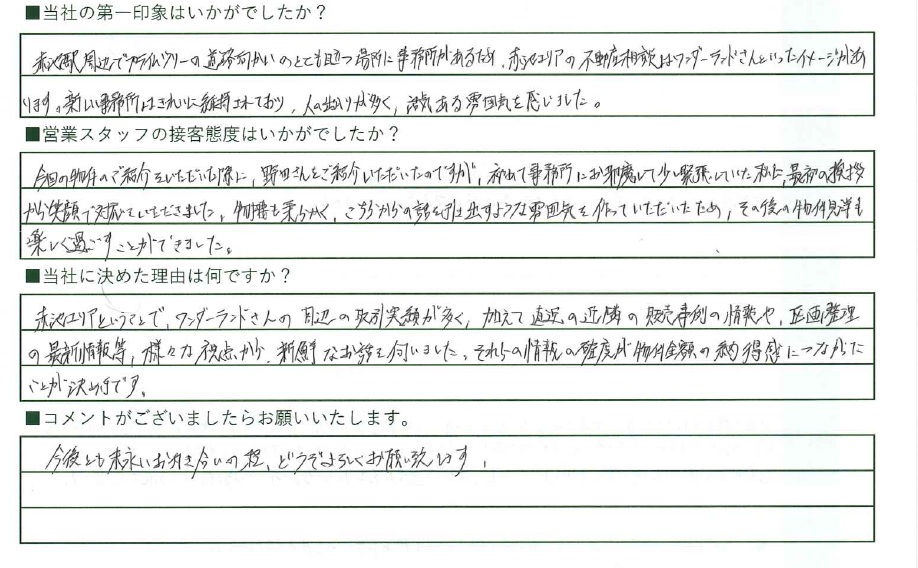 ■当社の第一印象はいかがでしたか？
赤池駅周辺でプライムツリーの道路向かいのとても目立つ場所に事務所があるため、赤池エリアの不動産相談はワンダーランドさんといったイメージがあ
ります。新しい事務所はきれいに維持されており、人の出入りが多く、活気ある雰囲気を感じました。
■営業スタッフの接客態度はいかがでしたか？
今回の物件のご紹介をいただいた際に、野田さんをご紹介いただいたのですが、初めて事務所にお邪魔して少し緊張していた私に、最初の挨拶
から笑顔で対応していただきました。物腰も柔らかく、こちらからの話を引き出すような雰囲気を作っていただいたため、その後の物件見学も
楽しく過ごすことができました。
■当社に決めた理由は何ですか？
赤池エリアということで、ワンダーランドさんの周辺の取引実績が多く、加えて直近の近隣の販売事例の情報や、区画整理
の最新情報等、様々な視点から、新鮮なお話を伺いました。それらの情報の確度が物件金額の納得感につながった
ことが決め手です。
■コメントがございましたらお願いいたします。
今後とも末永いお付き合いの程、どうぞよろしくお願い致します。